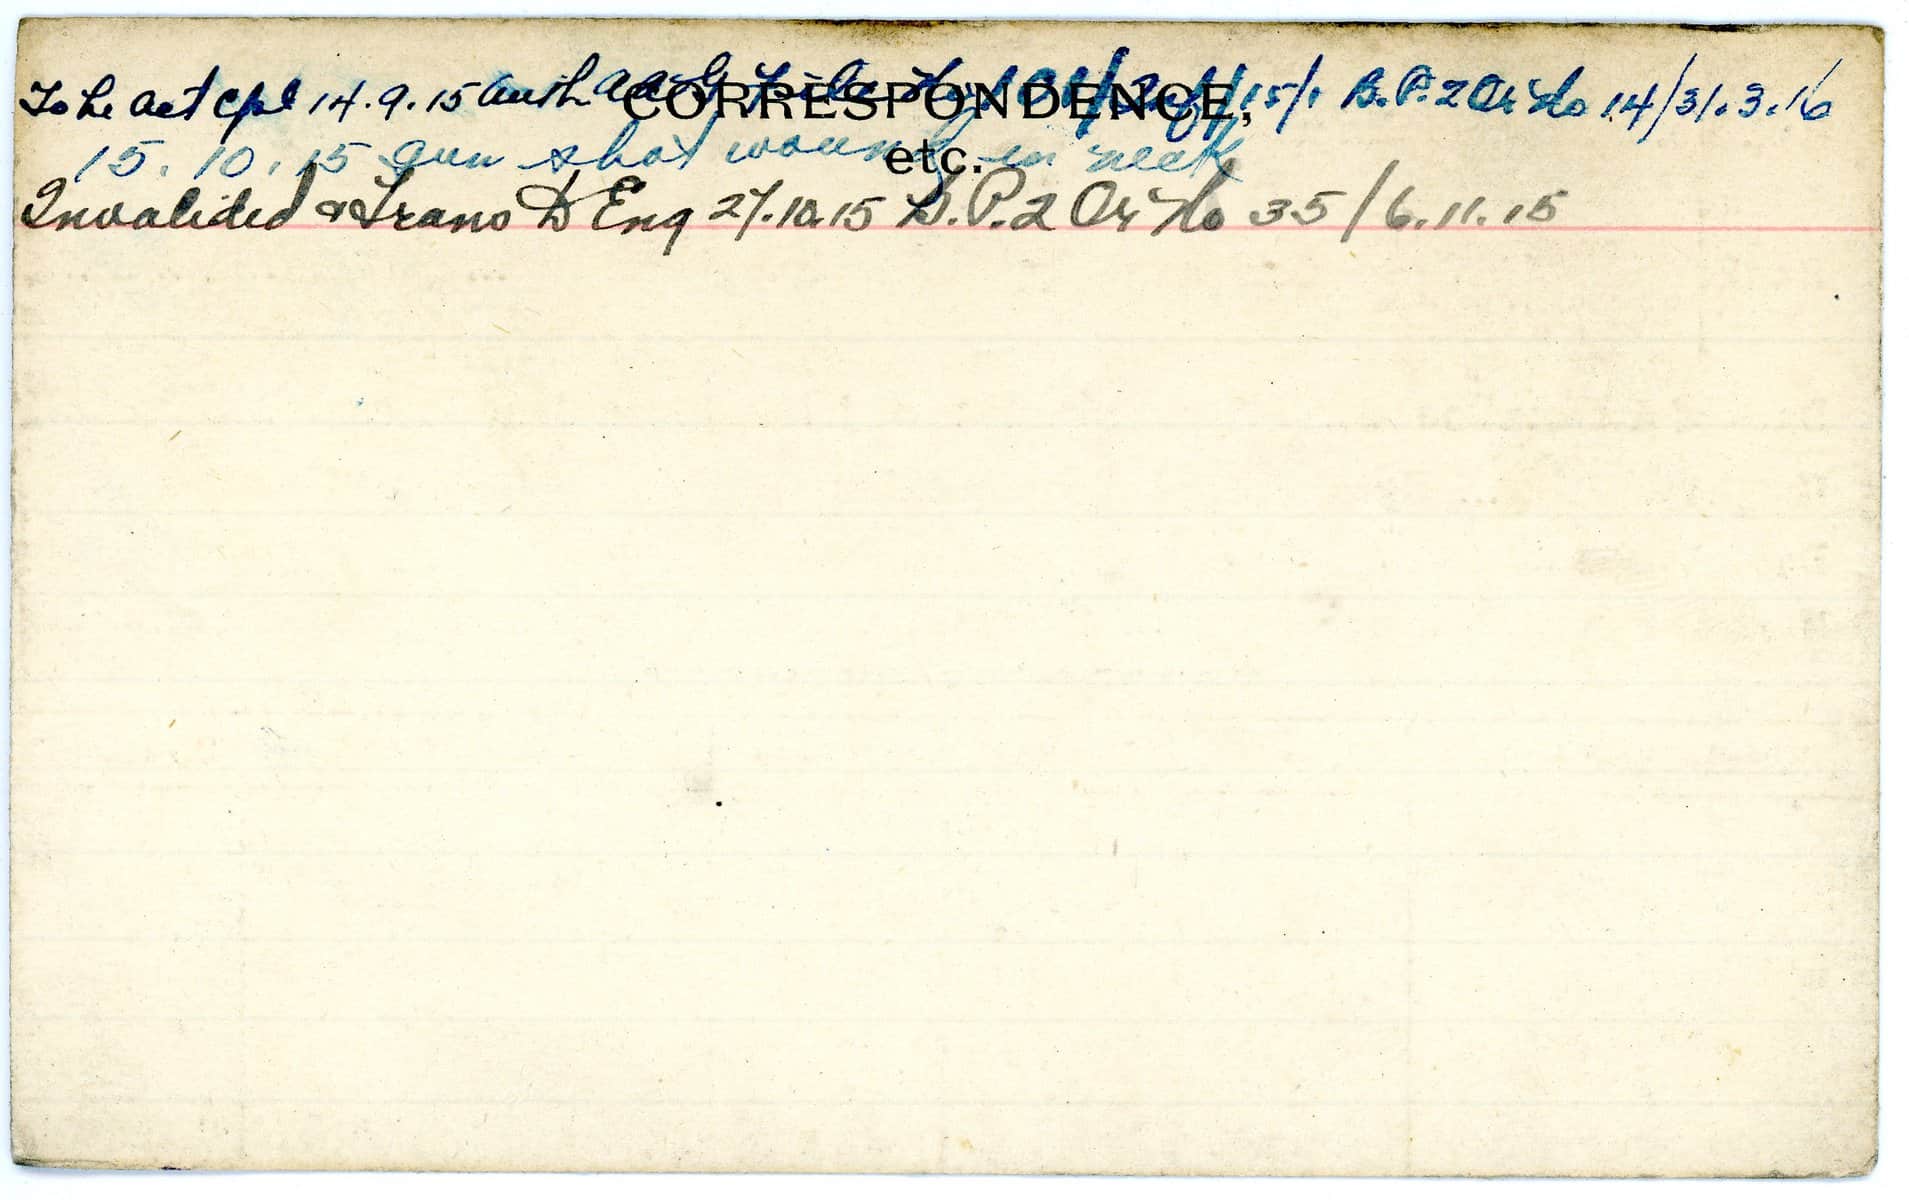 CORRESPONDENCE,
etc.
To be act cpl 14.9.15 auth AAG 15/1 B.P.2 Or No 14/31.3.16
15.10.15 gun shot wound in neck
Invalided & Trans to Eng 27.10.15 B.P.2 Or No 35/6.11.15